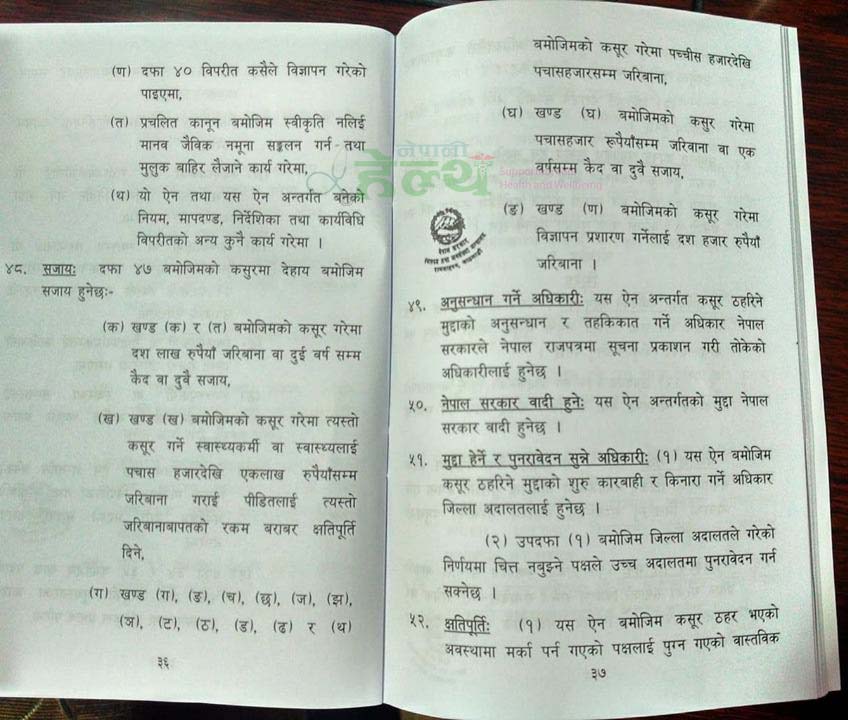 (ण) दफा ४० विपरीत कसैले विज्ञापन गरेको
पाइएमा,
(त) प्रचलित कानून बमोजिम स्वीकृति नलिई
मानव जैविक नमूना सङ्कलन गर्न तथा
मुलुक बाहिर लैजाने कार्य गरेमा,
(थ) यो ऐन तथा यस ऐन अन्तर्गत बनेको
नियम, मापदण्ड, निर्देशिका तथा कार्यविधि
विपरीतको अन्य कुनै कार्य गरेमा ।
४८. सजायः दफा ४७ बमोजिमको कसुरमा देहाय बमोजिम
सजाय हुनेछः-
(क) खण्ड (क) र (त) बमोजिमको कसूर गरेमा
दश लाख रुपैयाँ जरिबाना वा दुई बर्ष सम्म
कैद वा दुवै सजाय,
(ख) खण्ड (ख) बमोजिमको कसूर गरेमा त्यस्तो
कसूर गर्ने स्वास्थ्यकर्मी वा स्वास्थ्यलाई
पचास हजारदेखि एकलाख रुपैयाँसम्म
जरिबाना गराई पीडितलाई त्यस्तो
जरिबानाबापतको रकम बराबर क्षतिपूर्ति
दिने,
(ग) खण्ड (ग), (ङ), (च), (छ), (ज), (झ),
(ञ), (ट), (ठ), (ड), (ढ) र (थ)
३६
बमोजिमको कसूर गरेमा पच्चीस हजारदेखि
पचासहजारसम्म जरिबाना,
(घ) खण्ड (घ) बमोजिमको कसुर गरेमा
पचासहजार रूपैयाँसम्म जरिबाना वा एक
बर्षसम्म कैद वा दुवै सजाय,
(ङ) खण्ड (ण) बमोजिमको कसूर गरेमा
विज्ञापन प्रशारण गर्नेलाई दश हजार रुपैयाँ
जरिबाना ।
४९. अनुसन्धान गर्ने अधिकारीः यस ऐन अन्तर्गत कसूर ठहरिने
मुद्दाको अनुसन्धान र तहकिकात गर्ने अधिकार नेपाल
सरकारले नेपाल राजपत्रमा सूचना प्रकाशन गरी तोकेको
अधिकारीलाई हुनेछ ।
५०. नेपाल सरकार वादी हुनेः यस ऐन अन्तर्गतको मुद्दा नेपाल
सरकार वादी हुनेछ ।
५१. मुद्दा हेर्ने र पुनरावेदन सुन्ने अधिकारीः (१) यस ऐन बमोजिम
कसूर ठहरिने मुद्दाको शुरु कारबाही र किनारा गर्ने अधिकार
जिल्ला अदालतलाई हुनेछ ।
(२) उपदफा (१) बमोजिम जिल्ला अदालतले गरेको
निर्णयमा चित्त नबुझ्ने पक्षले उच्च अदालतमा पुनरावेदन गर्न
सक्नेछ ।
५२. क्षतिपूर्तिः (१) यस ऐन बमोजिम कसूर ठहर भएको
अवस्थामा मर्का पर्न गएको पक्षलाई पुग्न गएको वास्तविक
३७
नेपाली
हेल्थ
Health and Wellbeing
नेपाल सरकार